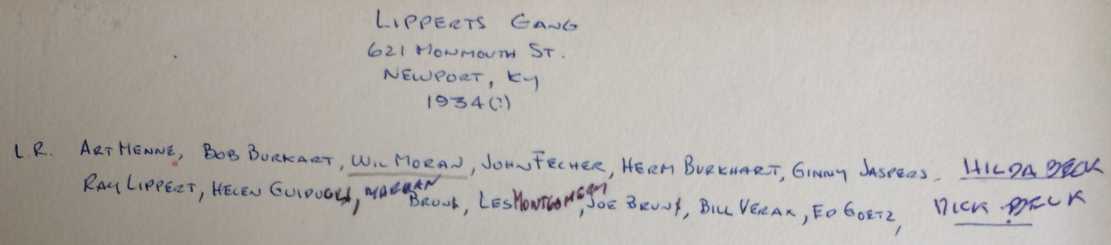 LIPPERTS GANG
621 MONMOUTH ST.
NEWPORT, KY
1934(?)
L.R. ART HENNE, BOB BURKART, WIL MORAN, JOHN FECHER, HERM BURKHART, GINNY JASPERS. HILDA BECK
RAY LIPPERT, HELEN GUIDUGLI, BRUNS, LES MONTGOMERY, JOE BRUNS, BILL VERAX, ED GOETZ, DICK BECK